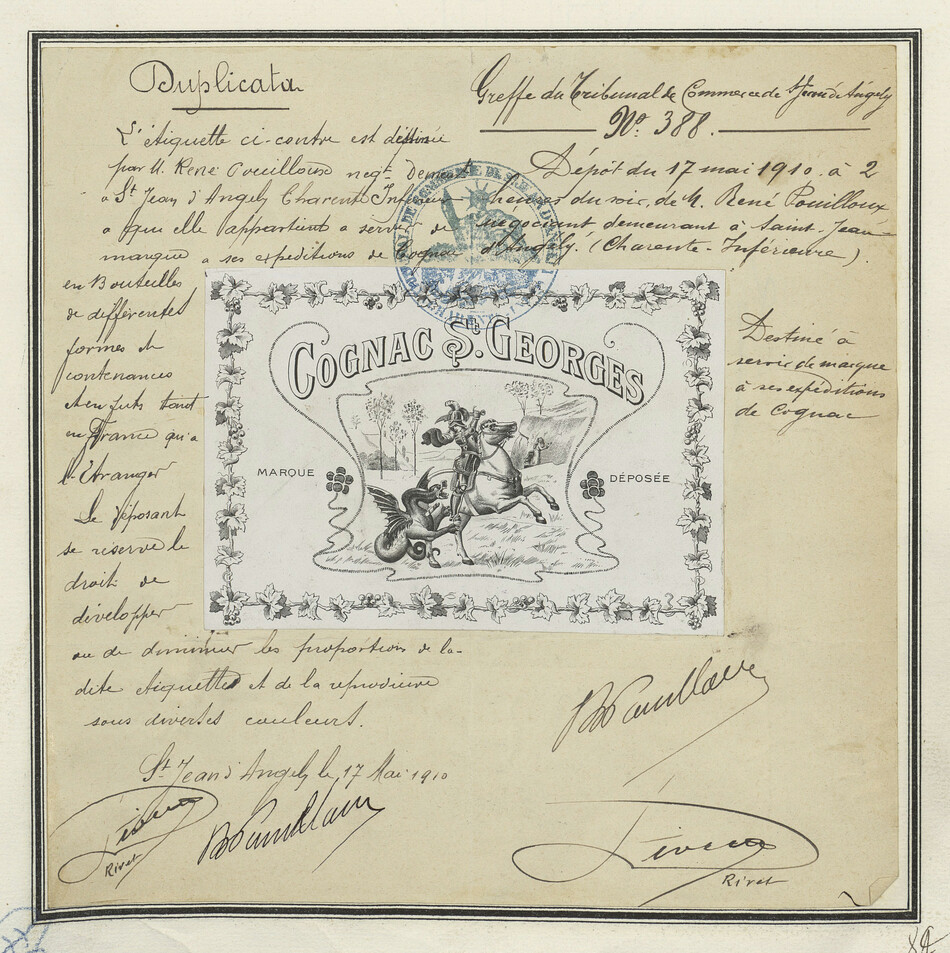 Duplicata
L'étiquette ci-contre est destinée
par M. René Pouilloux négt. demeurt
à St Jean d'Angely Charente Inférieure
à qui elle appartient a servir de
marque a ses expéditions de Cognac
en Bouteilles
de différentes
formes et
contenances
et en futs tant
en France qu'a
l'Etranger
Le déposant
se réserve le
droit de
développer
ou de diminuer les proportions de la-
dite étiquette et de la reproduire
sous diverses couleurs.
St Jean d'Angely le 17 Mai 1910
Rivet
Greffe du Tribunal de Commerce de St Jean d'Angely
No. 388.
Dépôt du 17 mai 1910. à 2
heures du soir, de M. René Pouilloux
négociant demeurant à Saint-Jean-
d'Angely. (Charente-Inférieure).
COGNAC ST. GEORGES
MARQUE DÉPOSÉE
Destiné à
servir de marque
à ses expéditions
de Cognac
Rivet